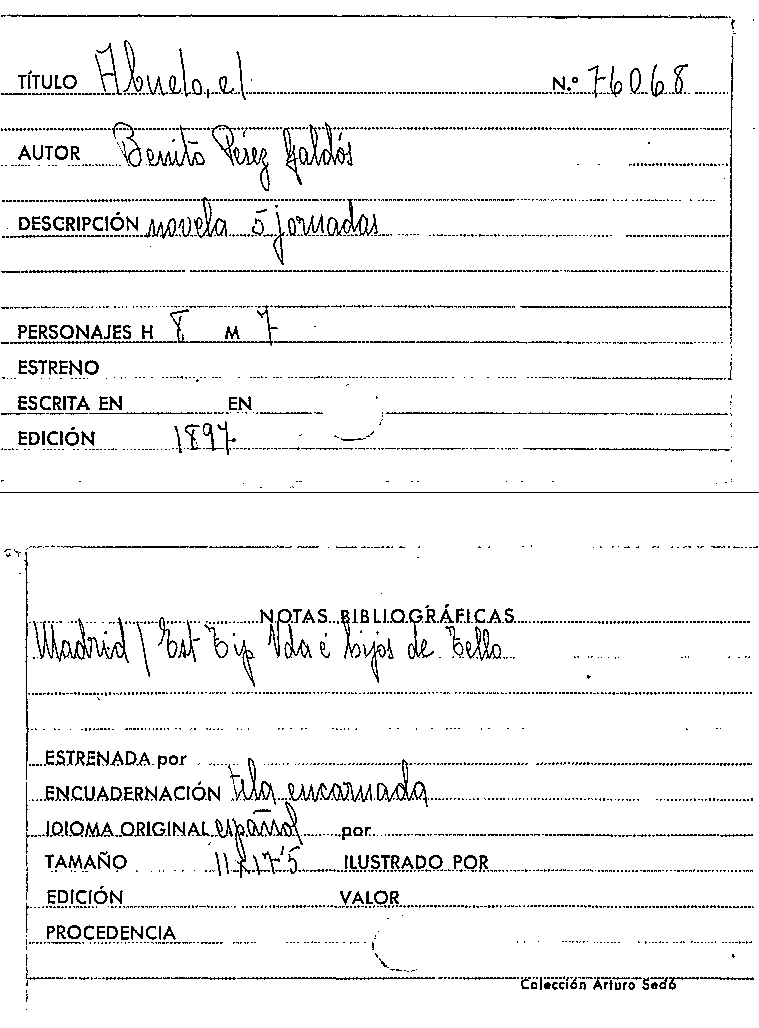 TÍTULO Abuelo, el N.º 76068
AUTOR Benito Pérez Galdós
DESCRIPCIÓN novela 5 jornadas
PERSONAJES H 8 M 7
ESTRENO
ESCRITA EN EN
EDICIÓN 1897
NOTAS BIBLIOGRÁFICAS
Madrid / Est Tip Vda é hijos de Tello
ESTRENADA por
ENCUADERNACIÓN tela encarnada
IDIOMA ORIGINAL español por
TAMAÑO 11x17'5 ILUSTRADO POR
EDICIÓN VALOR
PROCEDENCIA
Colección Arturo Sedó